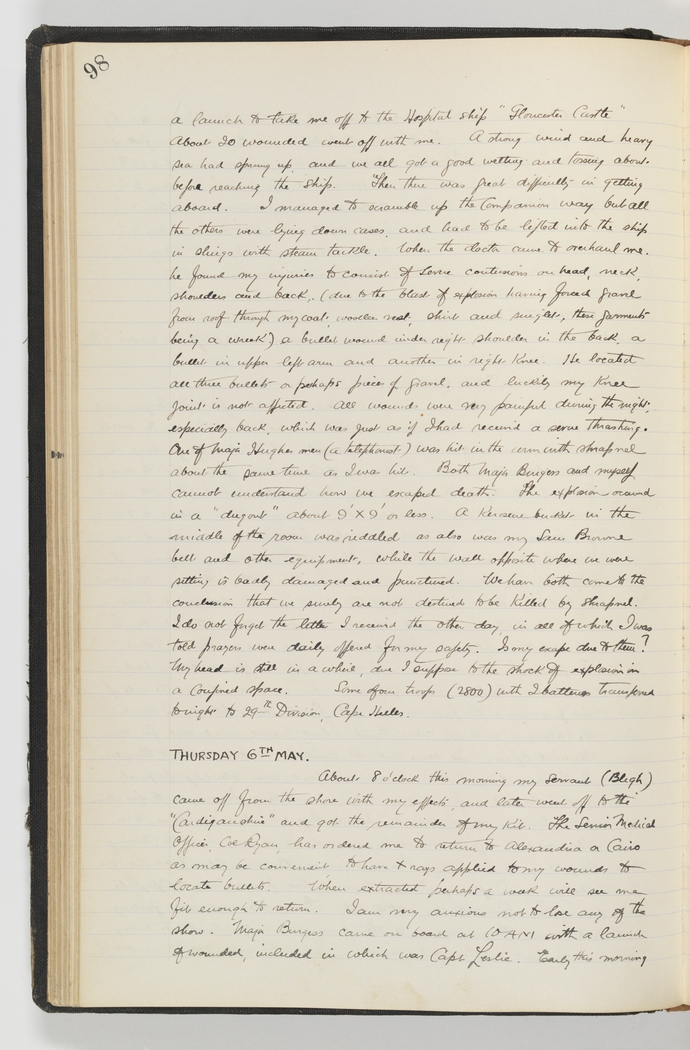 98
a launch to take me off to the Hospital ship "Gloucester Castle"
About 20 wounded went off with me. A strong wind and heavy
sea had sprung up, and we all got a good wetting and tossing about
before reaching the ship. Then there was great difficulty in getting
aboard. I managed to scramble up the Companion way but all
the others were lying down cases, and had to be lifted into the ship
in slings with steam tackle. When the doctor came to overhaul me.
he found my injuries to consist of severe contusions on head, neck,
shoulders and back, (due to the blast of explosion having forced gravel
from roof through my coat, woollen vest, shirt and singlet, these garments
being a wreck) a bullet wound under right shoulder in the back, a
bullet in upper left arm and another in right Knee. He located
all three bullets or perhaps pieces of gravel, and luckily my Knee
joint is not affected. All wounds were very painful during the night,
especially back, which was just as if I had received a severe thrashing.
One of Major Hughes men (a telephonist) was hit in the arm with shrapnel
about the same time as I was hit. Both Major Burgess and myself
cannot understand how we escaped death. The explosion occurred
in a "dugout" about 9' X 9' or less. A Kerosene bucket in the
middle of the room was riddled as also was my Sam Browne
belt and other equipment, while the wall opposite where we were
sitting is badly damaged and punctured. We have both come to the
conclusion that we surely are not destined to be killed by shrapnel.
I do not forget the letter I received the other day, in all of which I was
told prayers were daily offered for my safety. Is my escape due to them?
My head is still in a whirl, due I suppose to the shock of explosion in
a confined space. Some of our troops (2800) with 2 batteries transferred
tonight to 29th Division, Cape Helles.
THURSDAY 6TH MAY.
About 8 o'clock this morning my Servant (Bligh)
came off from the shore with my effects, and later went off to the
"Cardiganshire" and got the remainder of my Kit. The Senior Medical
Officer, Col Ryan, has ordered me to return to Alexandria or Cairo
as may be convenient to have X rays applied to my wounds to
locate bullets. When extracted perhaps a week will see me
fit enough to return. I am very anxious not to lose any of the
show. Major Burgess came on board at 10 AM with a launch
of wounded, included in which was Capt Leslie. Early this morning